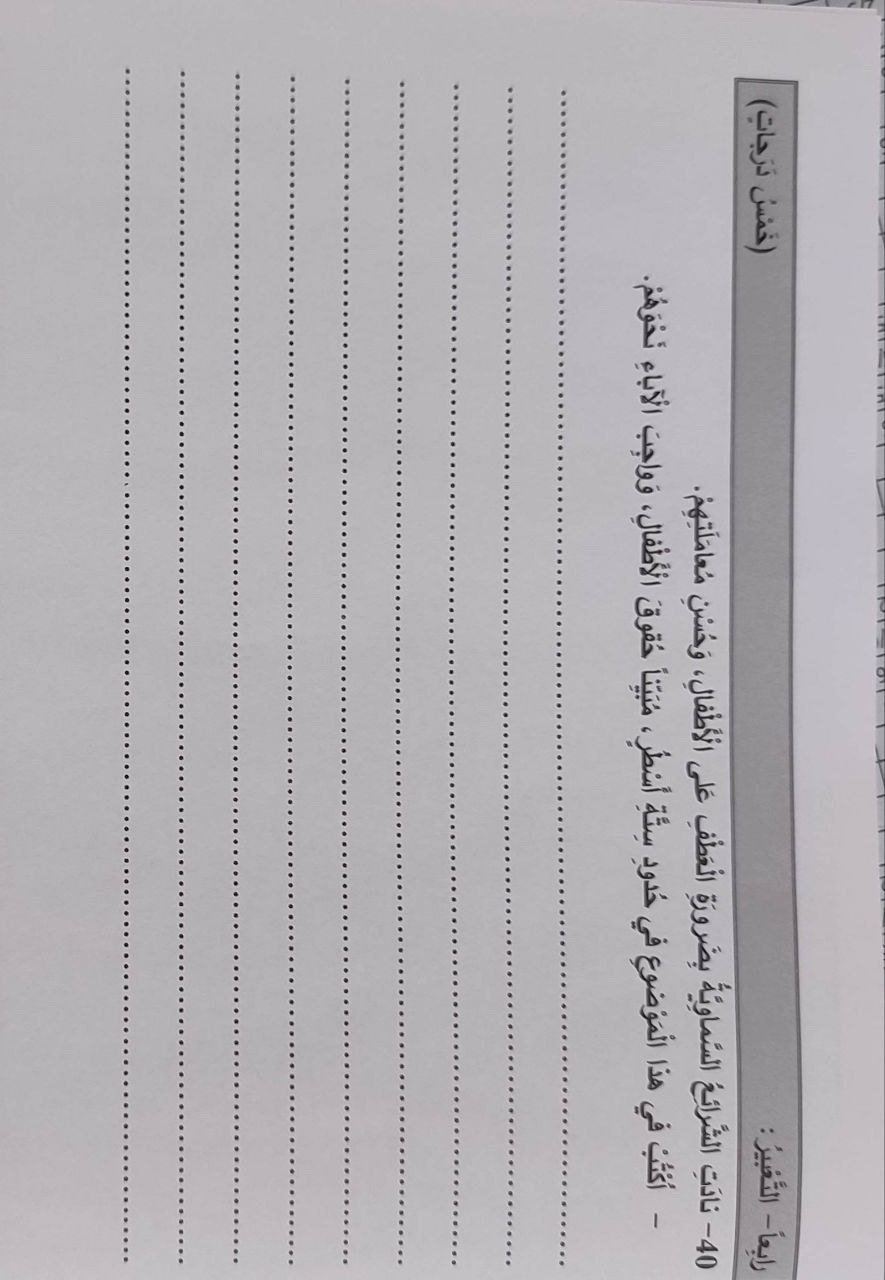 رابِعاً- التَّعْبيرُ : (خَمْسُ دَرَجاتٍ)
40- نادَتِ الشَّرائِعُ السَّماوِيَّةُ بِضَرورَةِ الْعَطْفِ عَلى الْأَطْفالِ، وَحُسْنِ مُعامَلَتِهِمْ.
- اُكْتُبْ في هذا الْمَوْضوعِ في حُدودِ سِتَّةِ أَسْطُرٍ، مُبَيِّناً حُقوقَ الْأَطْفالِ، وَواجِبَ الْآباءِ نَحْوَهُمْ.